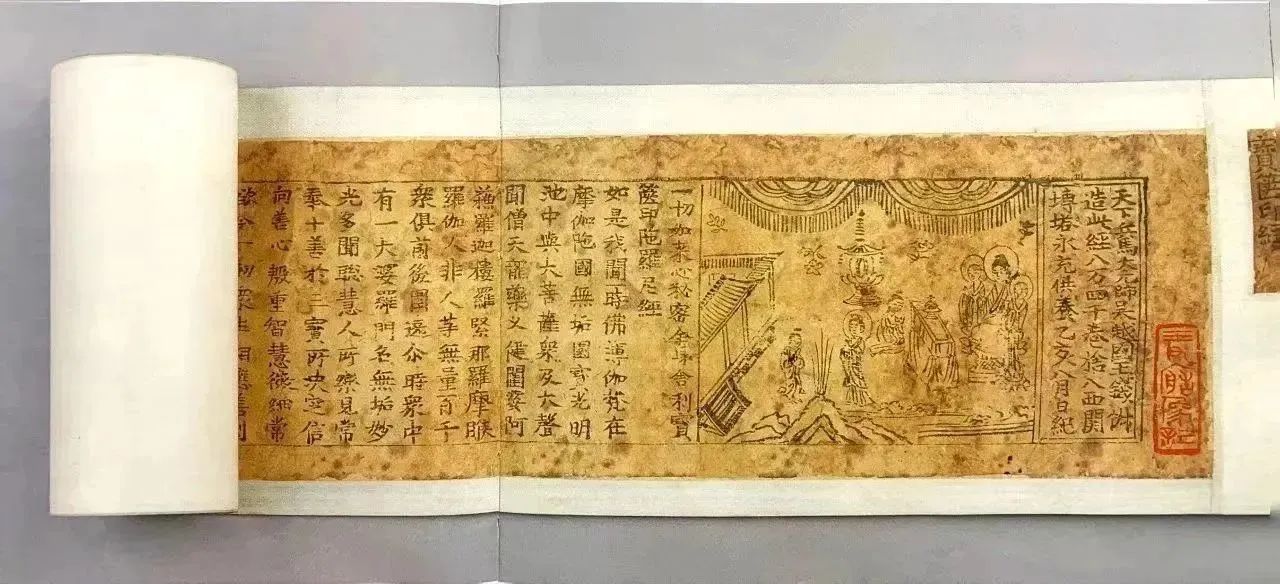 寶篋印經
天下兵馬大元帥吳越國王錢俶
造此經八万四千卷捨入西關
塼塔永充供養乙亥八月日紀
一切如来心秘密全身舍利寶
篋印陁羅尼經
如是我聞一時佛薄伽梵在
摩伽陁國無垢園寶光明
池中與大菩薩衆及大聲
聞僧天龍藥叉健闥婆阿
蘇羅迦樓羅緊那羅摩睺
羅伽人非人等無量百千
衆俱前後圍遶尒時衆中
有一大婆羅門名無垢妙
光多聞聦慧人所樂見常
奉十善於三寶所决定信
向善心殷重智慧微細常
令一切衆生相應善利